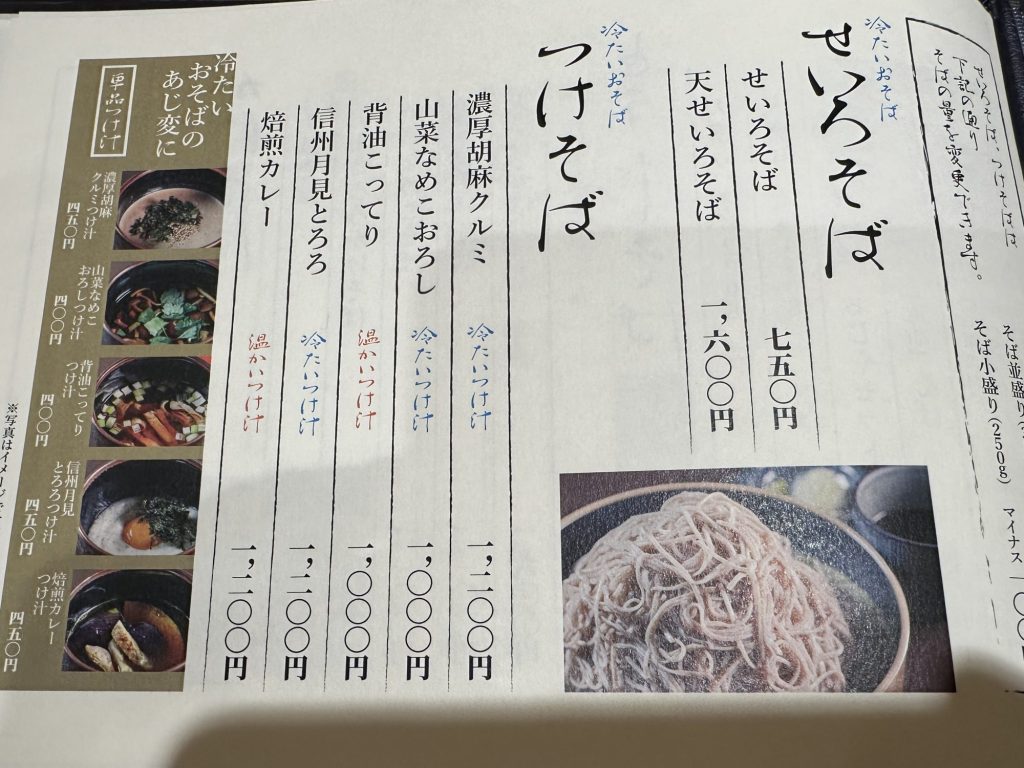 せいろそば、つけそばは
下記の通り
そばの量を変更できます。
そば並盛り
そば小盛り(250g)
マイナス一〇〇
冷たいおそば
せいろそば
せいろそば 七五〇円
天せいろそば 一,六〇〇円
冷たいおそば
つけそば
濃厚胡麻クルミ 冷たいつけ汁 一,二〇〇円
山菜なめこおろし 冷たいつけ汁 一,〇〇〇円
背油こってり 温かいつけ汁 一,〇〇〇円
信州月見とろろ 冷たいつけ汁 一,二〇〇円
焙煎カレー 温かいつけ汁 一,二〇〇円
冷たい
おそばの
あじ変に
単品つけ汁
濃厚胡麻
クルミつけ汁
四五〇円
山菜なめこ
おろしつけ汁
四〇〇円
背油こってり
つけ汁
四〇〇円
信州月見
とろろつけ汁
四五〇円
焙煎カレー
つけ汁
四五〇円
※写真はイメージで